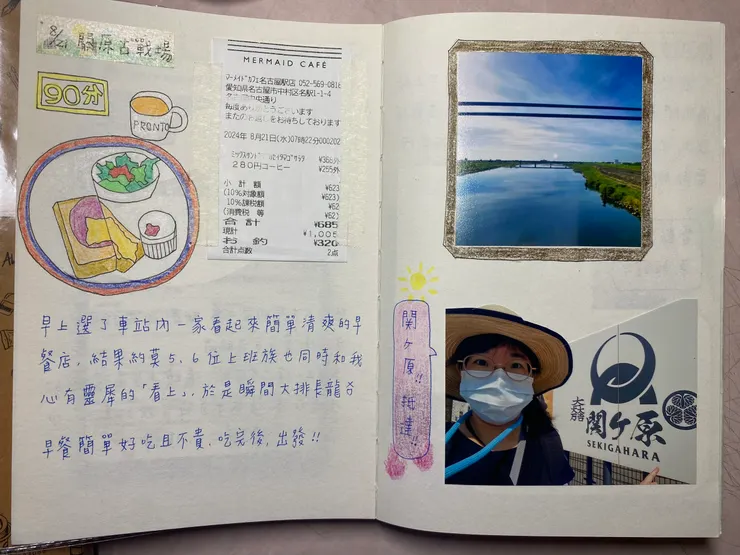 8/21 關原古戰場
90分
PRONTO
MERMAID CAFÉ
ﾏｰﾒｲﾄﾞｶﾌｪ名古屋駅店 052-569-0816
愛知県名古屋市中村区名駅1-1-4
毎度ありがとうございます
またのお越しをお待ちしております
2024年 8月21日(水)07時22分000202
280円コーヒー ¥255外
小 計 額 ¥623
(10%対象額 ¥623)
10%課税額 ¥62
(消費税 等 ¥62)
合 計 ¥685
現計 ¥1,005
お 釣 ¥320
合計点数 2点
早上選了車站內一家看起來簡單清爽的早
餐店,結果約莫5、6位上班族也同時和我
心有靈犀的「看上」,於是瞬間大排長龍
早餐簡單好吃且不貴,吃完後,出發!!
関ヶ原!!抵達!!
関ケ原
SEKIGAHARA